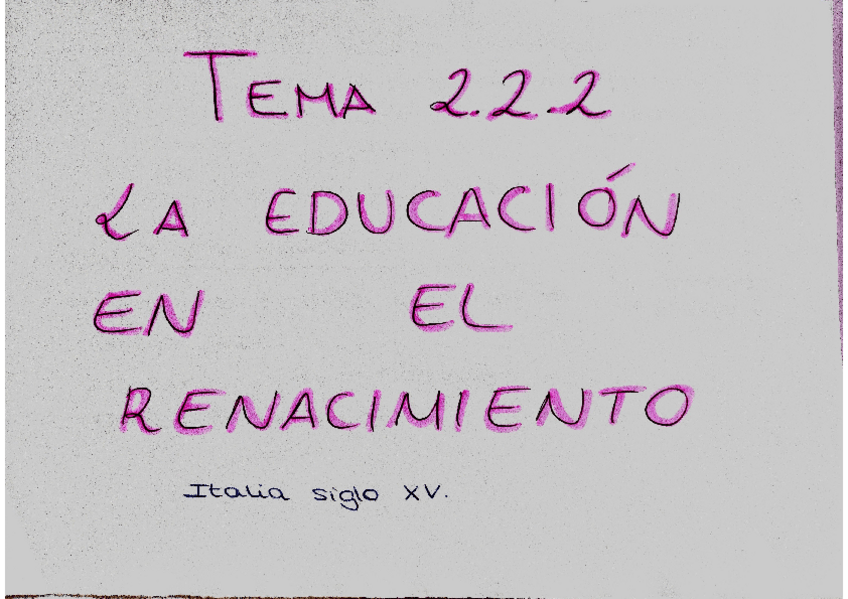 TEMA 2.2.2
LA EDUCACIÓN
EN EL
RENACIMIENTO
Italia siglo XV.